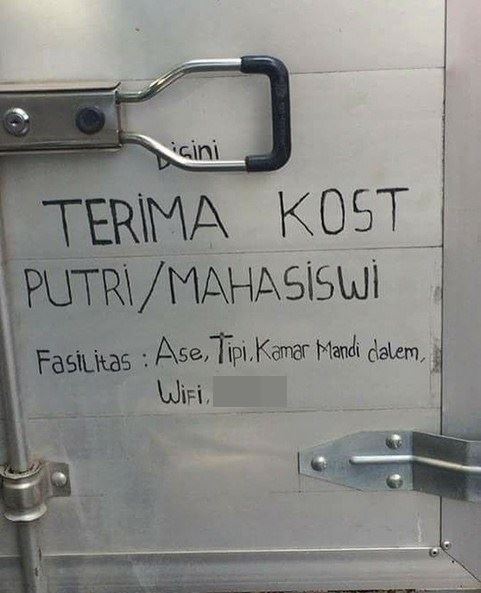 Disini
TERIMA KOST
PUTRI/MAHASISWI
Fasilitas : Ase, Tipi, Kamar Mandi dalem,
Wifi,